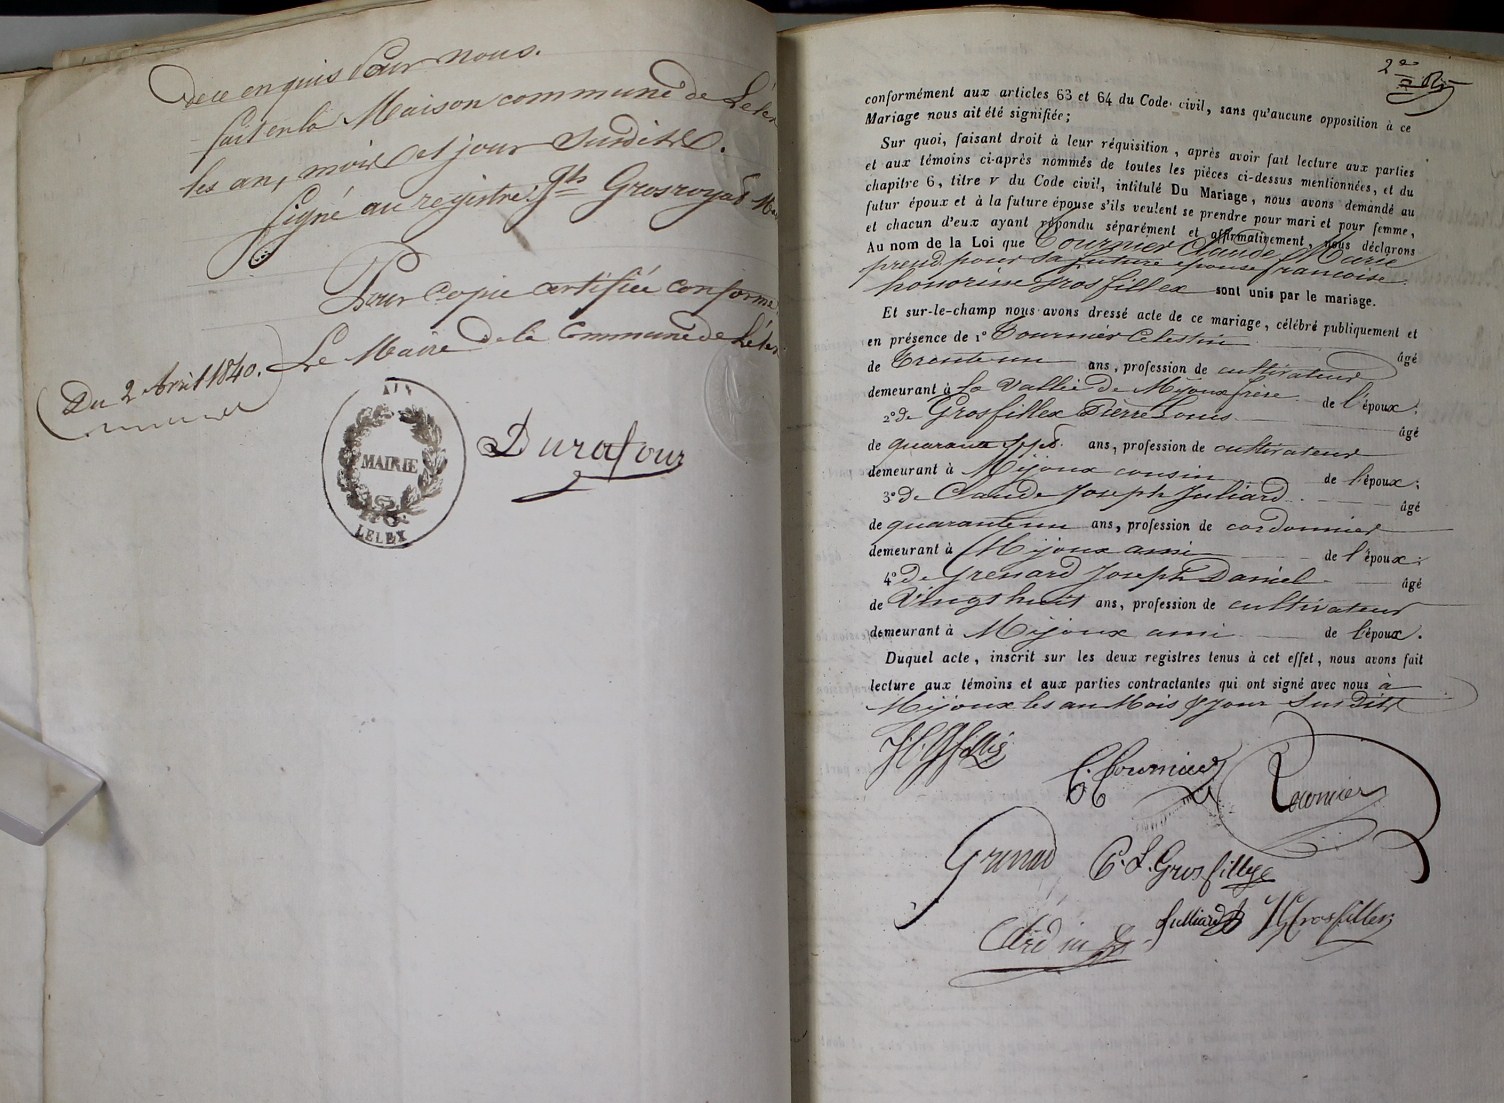 de ce enquis Par nous.
fait en la Maison commune de Lélex
les an, mois et jour Susdits.
Signé au registre: Grosroyat
Pour Copie certifiée conforme
Le Maire de la Commune de Lélex
Du 2 Avril 1840.
AIN
MAIRIE
LELEX
Durafour
2e
conformément aux articles 63 et 64 du Code civil, sans qu'aucune opposition à ce
Mariage nous ait été signifiée;
Sur quoi, faisant droit à leur réquisition, après avoir fait lecture aux parties
et aux témoins ci-après nommés de toutes les pièces ci-dessus mentionnées, et du
chapitre 6, titre V du Code civil, intitulé Du Mariage, nous avons demandé au
futur époux et à la future épouse s'ils veulent se prendre pour mari et pour femme,
et chacun d'eux ayant répondu séparément et affirmativement, nous déclarons
Au nom de la Loi que Tournier Claude Marie
prend pour sa future epouse francoise
honorine Grosfillex sont unis par le mariage.
Et sur-le-champ nous avons dressé acte de ce mariage, célébré publiquement et
en présence de 1º Tournier Celestin âgé
de Trente un ans, profession de cultivateur
demeurant à La Vallée De Mijoux frère de l'époux;
2º De Grosfillex Pierre Louis âgé
de quarante sept ans, profession de cultivateur
demeurant à Mijoux cousin de l'époux;
3º De Claude Joseph Juliard âgé
de quarante un ans, profession de cordonnier
demeurant à Mijoux ami de l'époux;
4º De Grenard Joseph Daniel âgé
de Vingt huit ans, profession de cultivateur
demeurant à Mijoux ami de l'époux.
Duquel acte, inscrit sur les deux registres tenus à cet effet, nous avons fait
lecture aux témoins et aux parties contractantes qui ont signé avec nous à
Mijoux les an Mois & Jour Susdits
C. Tournier Tournier
Grenard P. L. Grosfillex
Julliard Grosfillex